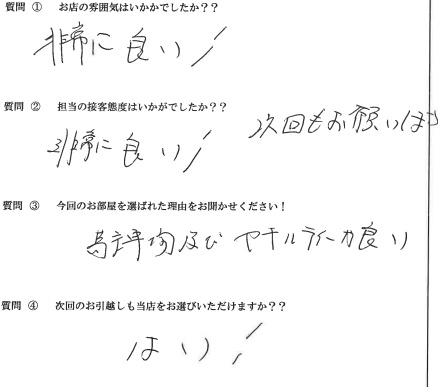 質問 ① お店の雰囲気はいかかでしたか??
非常に良い!
質問 ② 担当の接客態度はいかがでしたか??
非常に良い!
次回もお願いしま
質問 ③ 今回のお部屋を選ばれた理由をお聞かせください!
及び
が良い
質問 ④ 次回のお引越しも当店をお選びいただけますか??
はい!